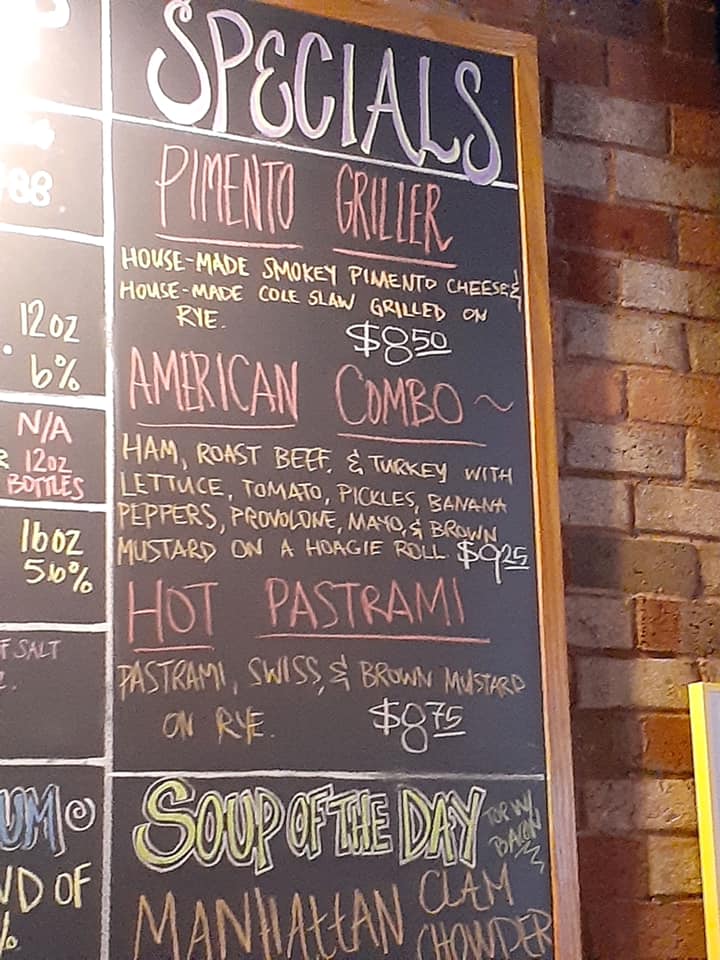 SPECIALS
PIMENTO GRILLER
HOUSE-MADE SMOKEY PIMENTO CHEESE &
HOUSE-MADE COLE SLAW GRILLED ON
RYE.
$8.50
AMERICAN COMBO ~
HAM, ROAST BEEF, & TURKEY WITH
LETTUCE, TOMATO, PICKLES, BANANA
PEPPERS, PROVOLONE, MAYO, & BROWN
MUSTARD ON A HOAGIE ROLL $9.25
HOT PASTRAMI
PASTRAMI, SWISS, & BROWN MUSTARD
ON RYE.
$8.75
SOUP OF THE DAY
TOP W/
BACON
MANHATTAN CLAM
CHOWDER
88
12OZ
6%
N/A
12OZ
BOTTLES
16OZ
5.0%
F SALT
UM
ND OF
%